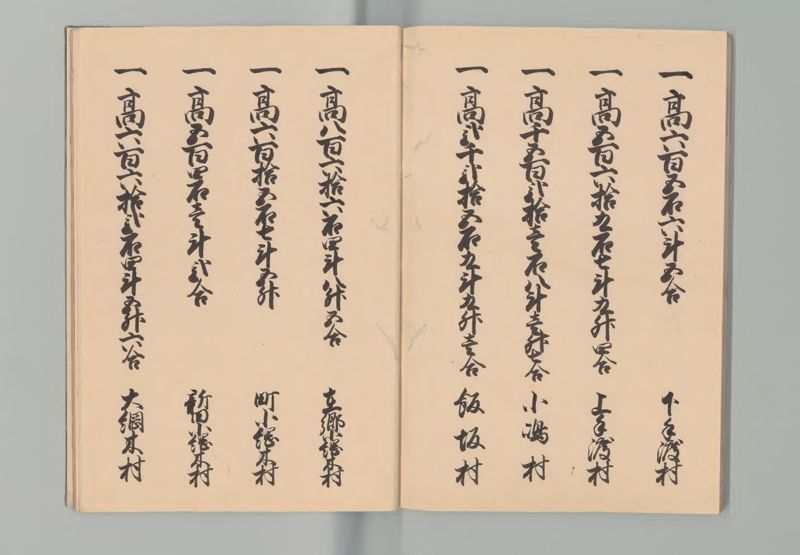 一高六百五石六斗五合 下手渡村
一高五百六拾九石七斗九升四合 上手渡村
一高千五百弐拾壱石八斗壱升七合 小嶋村
一高弐千弐拾五石九斗九升壱合 飯坂村
一高八百六拾六石四斗八升五合 在郷小綱木村
一高六百拾五石七斗五升 町小綱木村
一高五百四石壱斗弐合 新田小綱木村
一高六百六拾弐石四斗五升六合 大綱木村